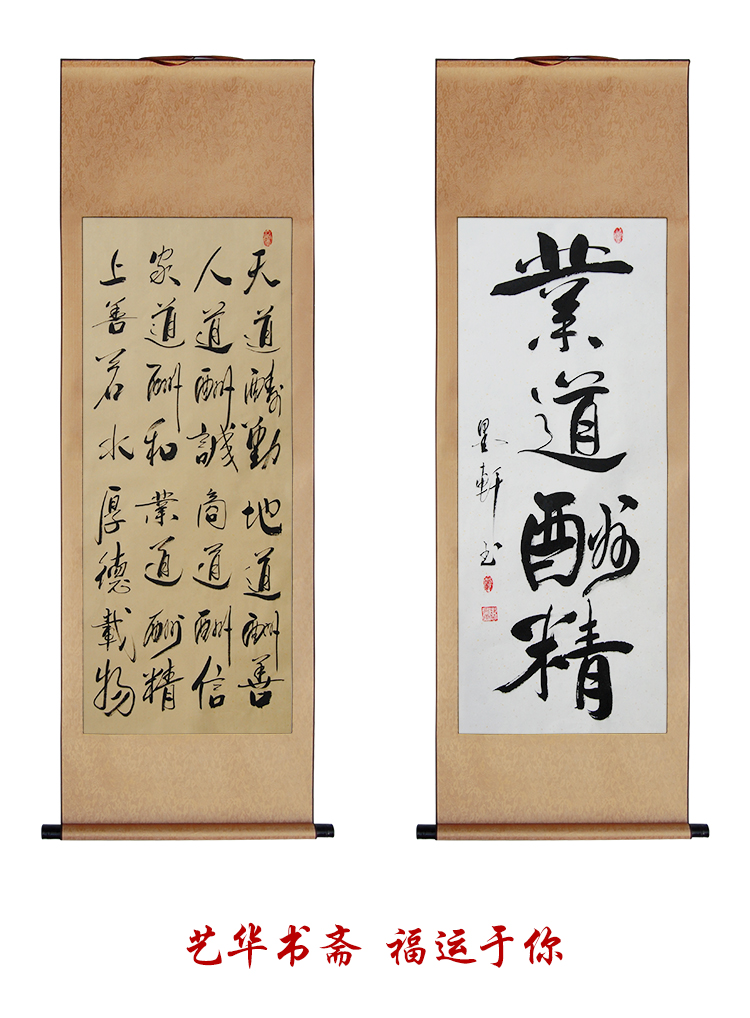 天道酬勤地道酬善
人道酬誠商道酬信
家道酬和業道酬精
上善若水厚德載物
業道酬精
墨軒书
艺华书斋 福运于你